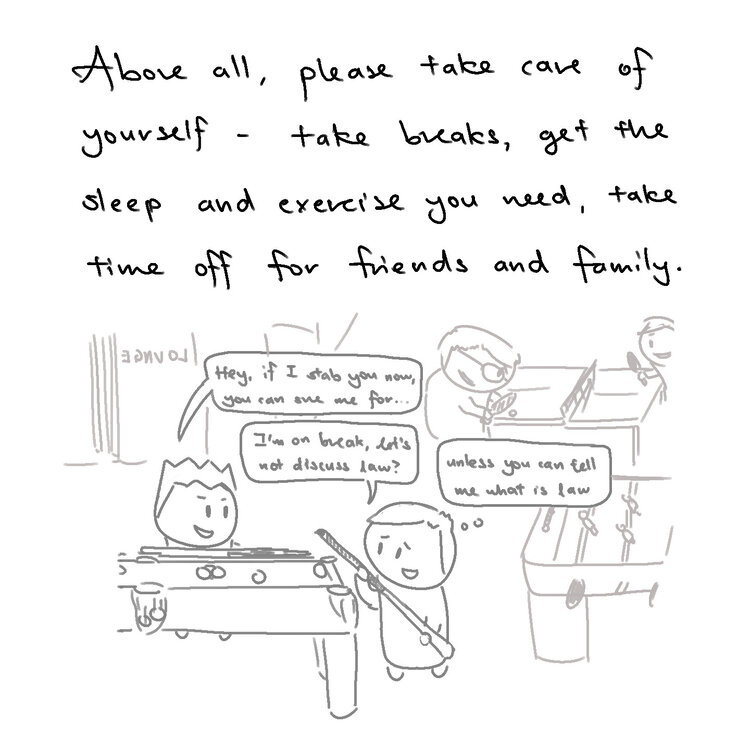 Above all, please take care of
yourself - take breaks, get the
sleep and exercise you need, take
time off for friends and family.
LOUNGE
Hey, if I stab you now,
you can sue me for...
I'm on break, let's
not discuss law?
unless you can tell
me what is law